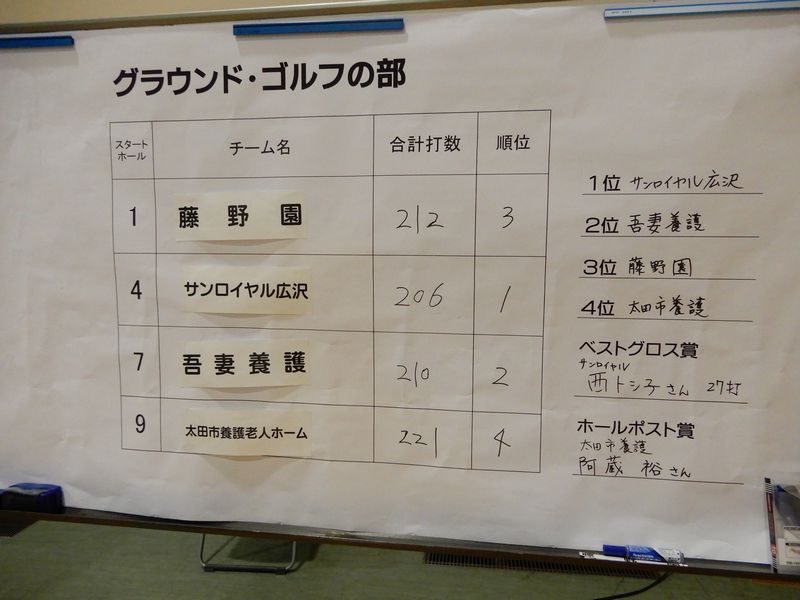 グラウンド・ゴルフの部
スタートホール チーム名 合計打数 順位
1 藤野園 212 3
4 サンロイヤル広沢 206 1
7 吾妻養護 210 2
9 太田市養護老人ホーム 221 4
1位 サンロイヤル広沢
2位 吾妻養護
3位 藤野園
4位 太田市養護
ベストグロス賞
サンロイヤル
西トシ子さん 27打
ホールポスト賞
太田市養護
阿蔵 裕さん